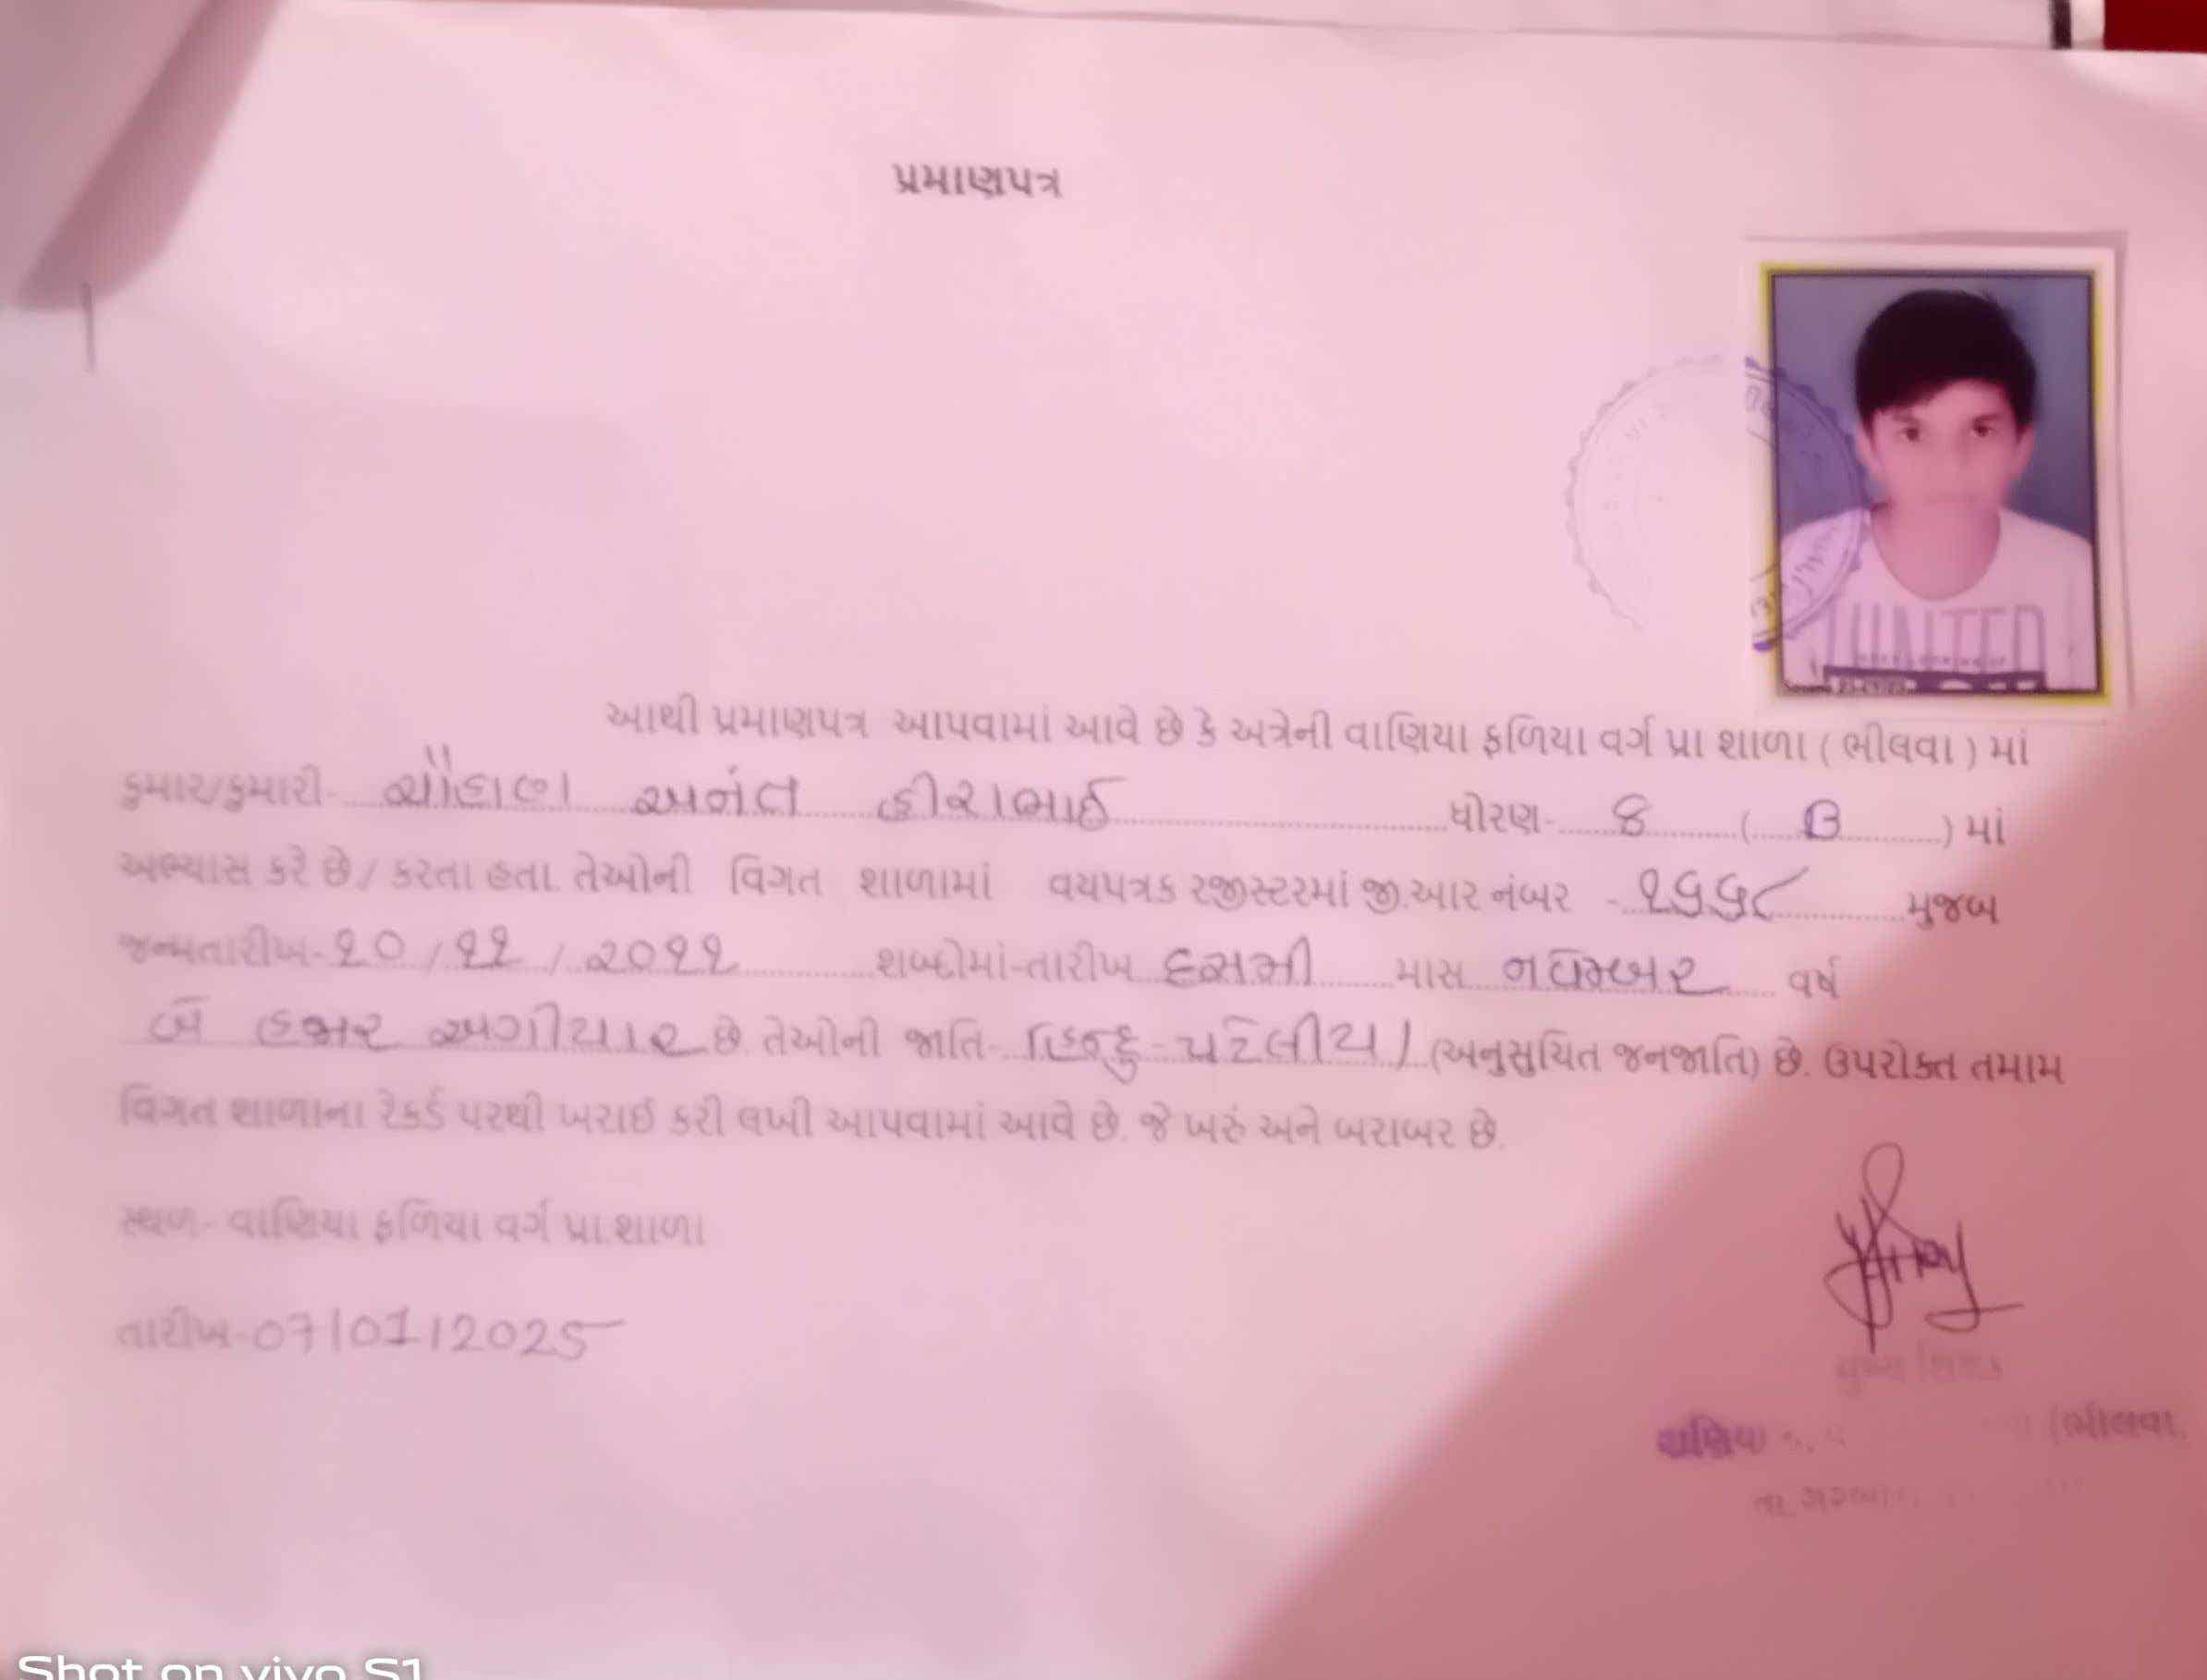 પ્રમાણપત્ર
UNITED
આથી પ્રમાણપત્ર આપવામાં આવે છે કે અત્રેની વાણિયા ફળિયા વર્ગ પ્રા શાળા ( ભીલવા ) માં
કુમાર/કુમારી- ચૌહાણ અનંત હીરાભાઈ ધોરણ- 8 ( B ) માં
અભ્યાસ કરે છે / કરતા હતા. તેઓની વિગત શાળામાં વયપત્રક રજીસ્ટરમાં જી.આર નંબર - ૧૬૬૮ મુજબ
જન્મતારીખ- ૧૦ / ૧૧ / ૨૦૧૧ શબ્દોમાં-તારીખ દસમી માસ નવેમ્બર વર્ષ
બે હજાર અગીયાર છે. તેઓની જાતિ- હિન્દુ - પટેલીયા (અનુસુચિત જનજાતિ) છે. ઉપરોક્ત તમામ
વિગત શાળાના રેકર્ડ પરથી ખરાઈ કરી લખી આપવામાં આવે છે. જે ખરું અને બરાબર છે.
સ્થળ- વાણિયા ફળિયા વર્ગ પ્રા.શાળા
તારીખ- 07/01/2025
મુખ્ય શિક્ષક
વાણિયા (ભીલવા
Shot on vivo S1